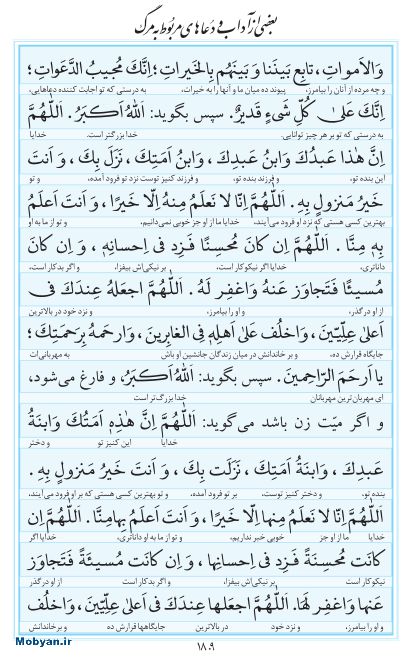 بعضی از آداب و دعاهای مربوط به مرگ
وَالاَمواتِ ، تابِع بَینَنا وَ بَینَهُم بِالخَیراتِ؛ اِنَّکَ مُجیبُ الدَّعَواتِ؛
و چه مرده از آنان را بیامرز، پیوند ده میان ما و آنها را به خیرات، به درستی که تو اجابت کننده دعاهایی،
اِنَّکَ عَلیٰ کُلِّ شَیءٍ قَدیرٌ. سپس بگوید: اَللّٰهُ اَکبَرُ. اَللّٰهُمَّ
به درستی که تو بر هر چیز توانایی. خدا بزرگتر است. خدایا
اِنَّ هٰذا عَبدُکَ وَابنُ عَبدِکَ ، وَابنُ اَمَتِکَ ، نَزَلَ بِکَ ، وَ اَنتَ
این بنده تو، و فرزند بنده تو، و فرزند کنیز توست نزد تو فرود آمده، و تو
خَیرُ مَنزولٍ بِهِ . اَللّٰهُمَّ اِنّا لا نَعلَمُ مِنهُ اِلّا خَیرًا ، وَ اَنتَ اَعلَمُ
بهترین کسی هستی که نزد او فرود می‌آیند. خدایا ما از او جز خوبی نمی‌دانیم، و تو از ما به او
بِهِ مِنّا . اَللّٰهُمَّ اِن کانَ مُحسِنًا فَزِد فی اِحسانِهِ ، وَ اِن کانَ
داناتری، خدایا اگر نیکوکار است، بر نیکی‌اش بیفزا، و اگر بدکار است،
مُسیئًا فَتَجاوَز عَنهُ وَاغفِر لَهُ . اَللّٰهُمَّ اجعَلهُ عِندَکَ فی
از او در گذر، و او را بیامرز، و نزد خود در بالاترین
اَعلیٰ عِلِّیّینَ ، وَاخلُف عَلیٰ اَهلِهِ فِی الغابِرینَ ، وَارحَمهُ بِرَحمَتِکَ؛
جایگاه قرارش ده، و بر خاندانش در میان زندگان جانشین او باش به مهربانی‌ات
یا اَرحَمَ الرّاحِمینَ. سپس بگوید: اَللّٰهُ اَکبَرُ، و فارغ می‌شود،
ای مهربان‌ترین مهربانان خدا بزرگ‌تر است
و اگر میّت زن باشد می‌گوید: اَللّٰهُمَّ اِنَّ هٰذِهِ اَمَتُکَ وَابنَةُ
خدایا این کنیز تو و دختر
عَبدِکَ ، وَابنَةُ اَمَتِکَ ، نَزَلَت بِکَ ، وَ اَنتَ خَیرُ مَنزولٍ بِهِ .
بنده تو، و دختر کنیز توست، بر تو فرود آمده، و تو بهترین کسی هستی که بر او فرود می‌آیند،
اَللّٰهُمَّ اِنّا لا نَعلَمُ مِنها اِلّا خَیرًا ، وَ اَنتَ اَعلَمُ بِها مِنّا . اَللّٰهُمَّ اِن
خدایا ما از او جز خوبی خبر نداریم، و تو از ما به او داناتری، خدایا اگر
کانَت مُحسِنَةً فَزِد فی اِحسانِها ، وَ اِن کانَت مُسیئَةً فَتَجاوَز
نیکوکار است بر نیکی‌اش بیفزا، و اگر بدکار است از او در گذر
عَنها وَاغفِر لَها. اَللّٰهُمَّ اجعَلها عِندَکَ فی اَعلیٰ عِلِّیّینَ ، وَاخلُف
و او را بیامرز، و نزد خود در بالاترین جایگاهها قرارش ده و بر خاندانش
۱۸۹
Mobyan.ir